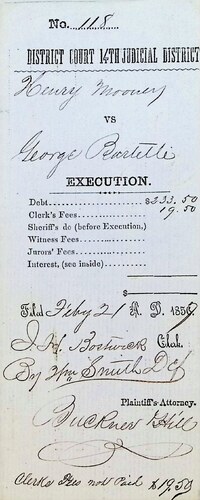 No. 118.
DISTRICT COURT 14TH JUDICIAL DISTRICT
Henry Mooney
VS
George Bartelle
EXECUTION.
Debt $333.50
Clerk's Fees 19.50
Sheriff's do (before Execution,)
Witness Fees
Jurors' Fees
Interest, (see inside)
$
Filed Feby 21 A. D. 185
J. H. Bostwick Clerk.
By Wm Smith Dep
Plaintiff's-Attorney.
Buckner & Hill
Clerks Fees not Paid $19.50